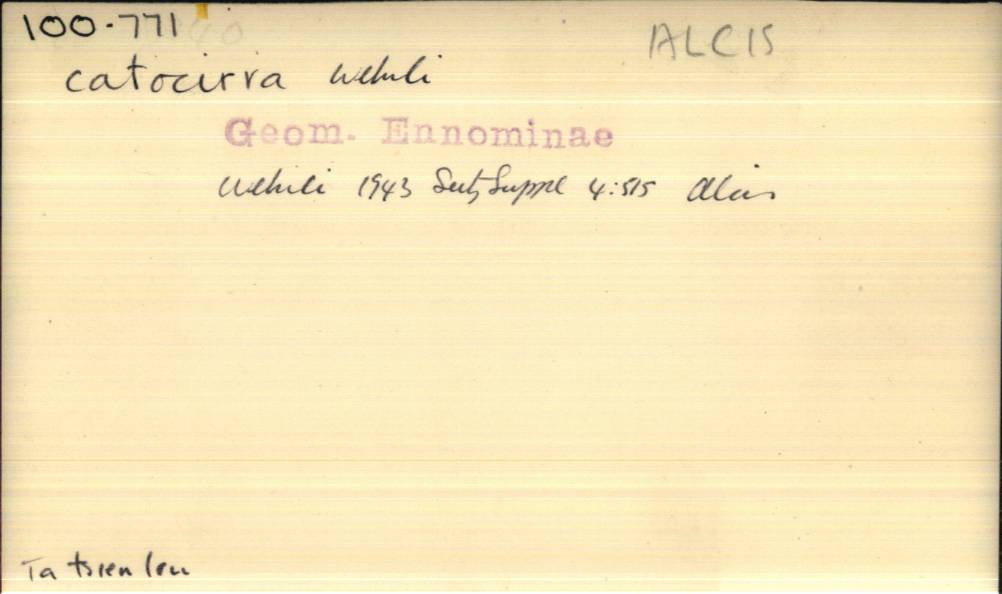 100-771
ALCIS
catocirra Wehrli
Geom. Ennominae
Wehrli 1943 Seitz Suppl 4:515 Alcis
Ta tsien lou